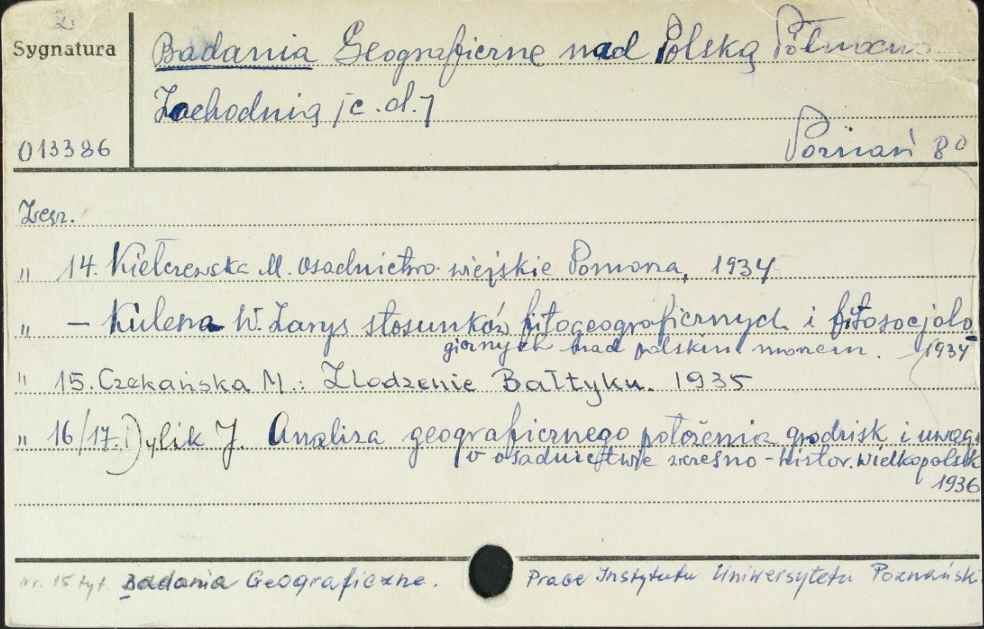 2.
Sygnatura
Badania Geograficzne nad Polską Północno
Zachodnią /c.d./
013386
Poznań 8º
Zesz.
" 14. Kiełczewska M. Osadnictwo wiejskie Pomorza, 1934
" — Kulesza W. Zarys stosunków fitogeograficznych i fitosocjolo
gicznych nad polskim morzem. 1934
" 15. Czekańska M.: Zlodzenie Bałtyku. 1935
" 16/17. Dylik J. Analiza geograficznego położenia grodzisk i uwagi
o osadnictwie wczesno-histor. Wielkopolski
1936
nr. 15 tyt. Badania Geograficzne. Prace Instytutu Uniwersytetu Poznański